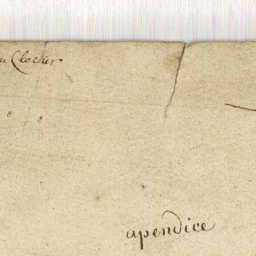 Clocher
apendice